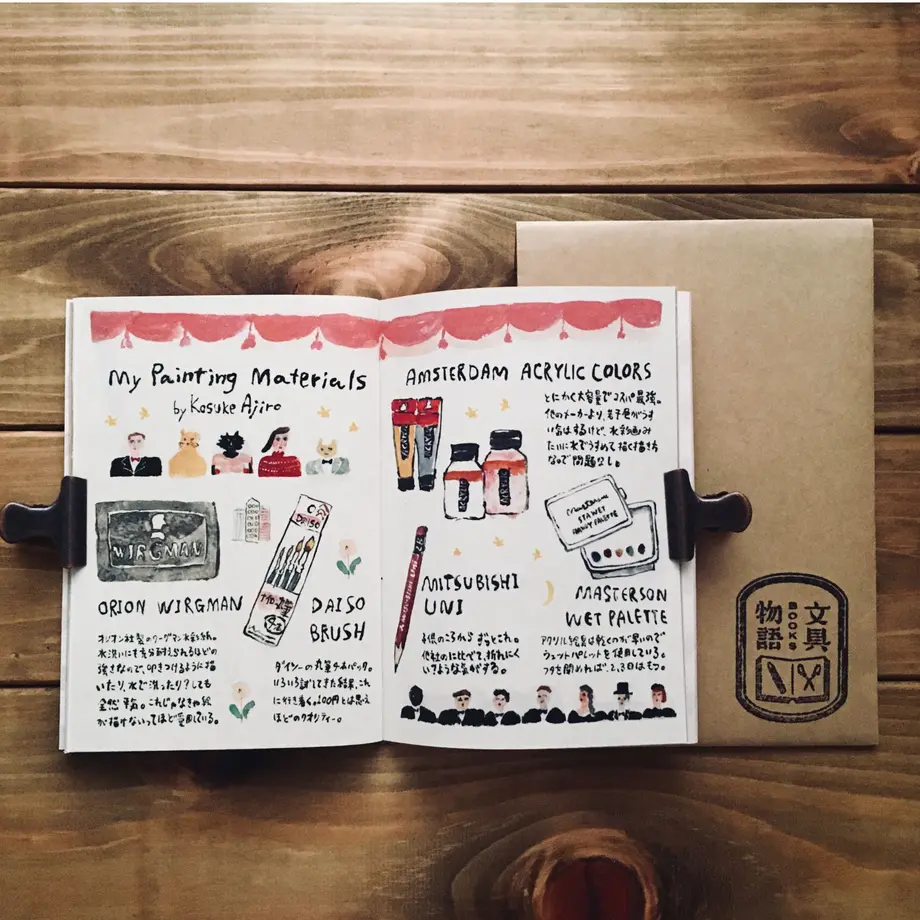 My Painting Materials
by Kosuke Ajiro
WIRGMAN
ORION WIRGMAN
オリオン社製のワーグマン水彩紙。
水洗いにも充分耐えられるほどの
強さなので、叩きつけるように描
いたり、水で洗ったり?しても
全然平気。これじゃなきゃ絵
が描けないってほど愛用している。
DAISO
DAISO
BRUSH
ダイソーの丸筆4本パック。
いろいろ試してきた結果、これ
に行き着く。100円とは思え
ほどのクオリティー。
AMSTERDAM ACRYLIC COLORS
とにかく大容量でコスパ最強。
他のメーカーより、若干色がうす
い気はするけど、水彩画み
たいに水でうすめて描く描き方
なので問題なし。
MITSUBISHI
UNI
子供のころからずっとこれ。
他社のに比べて、折れにく
いような気がする。
Masterson
STA-WET
HANDY PALETTE
MASTERSON
WET PALETTE
アクリル絵具は乾くのが早いので
ウェットパレットを使用している。
フタを閉めれば、2,3日はもつ。
文具
BOOKS
物語